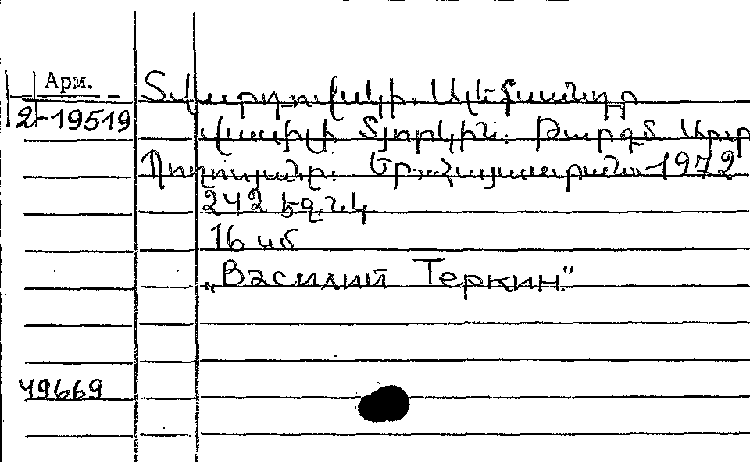 Арм.
2-19519
Տվարդովսկի. Ալեքսանդր
Վասիլի Տյորկին: Թարգմ. Արտ
Պողոսյանը: Եր., Հայաստան 1972
242 էջ. նկ
16 սմ
„Василий Теркин."
49669